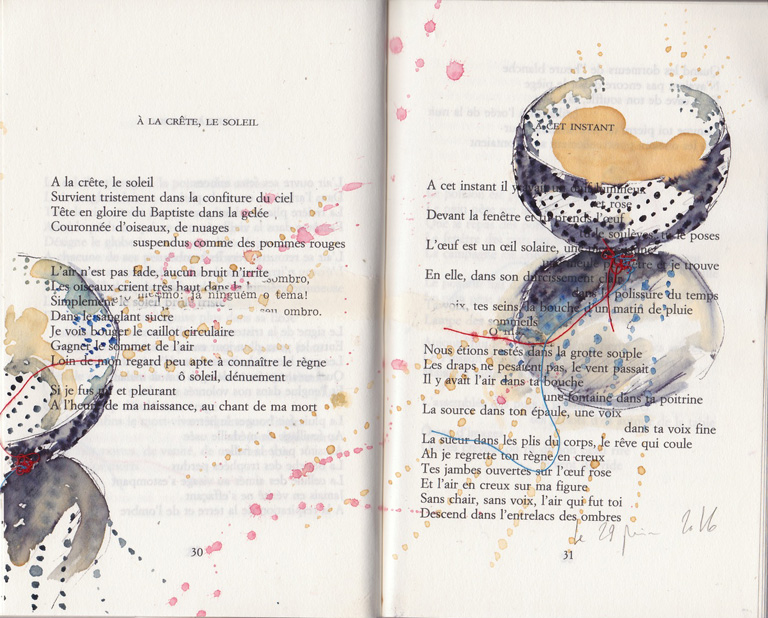 À LA CRÊTE, LE SOLEIL
A la crête, le soleil
Survient tristement dans la confiture du ciel
Tête en gloire du Baptiste dans la gelée
Couronnée d'oiseaux, de nuages
suspendus comme des pommes rouges
L'air n'est pas fade, aucun bruit n'irrite
sombro,
Les oiseaux crient très haut dans
Simplement mesmo: já ninguém o tema!
ombro.
Dans le sanglant sucre
Je vois bouger le caillot circulaire
Gagner le sommet de l'air
Loin de mon regard peu apte à connaître le règne
ô soleil, dénuement
Si je fus nu et pleurant
A l'heure de ma naissance, au chant de ma mort
30
A CET INSTANT
A cet instant il y avait un œuf lumineux
et rose
Devant la fenêtre et tu prends l'œuf
le soulèves, tu le poses
L'œuf est un œil solaire, une
et je trouve
En elle, dans son durcissement clair
dans la polissure du temps
voix, tes seins, la bouche d'un matin de pluie
sommeils
Nous étions restés dans la grotte souple
Les draps ne pesaient pas, le vent passait
Il y avait l'air dans ta bouche
une fontaine dans ta poitrine
La source dans ton épaule, une voix
dans ta voix fine
La sueur dans les plis du corps, le rêve qui coule
Ah je regrette ton règne en creux
Tes jambes ouvertes sur l'œuf rose
Et l'air en creux sur ma figure
Sans chair, sans voix, l'air qui fut toi
Descend dans l'entrelacs des ombres
le 29 juin 2016
31